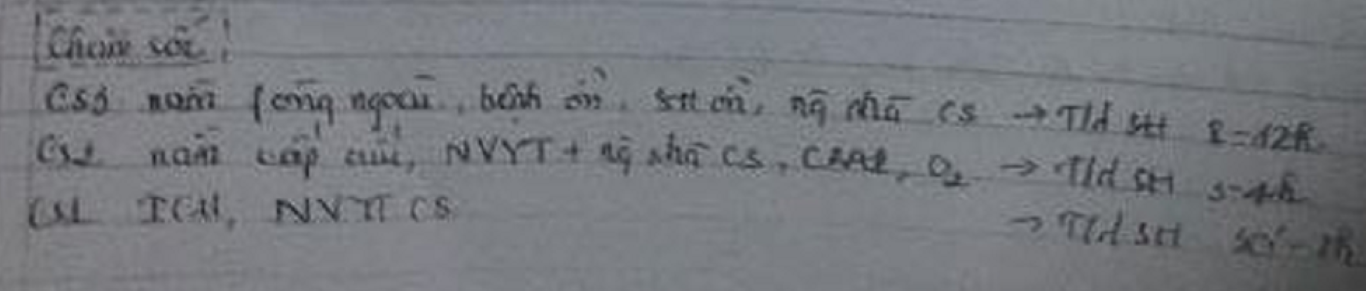 Chăm sóc
CS3 nằm fòng ngoài, bệnh ổn, SH ổn, ng nhà CS → T/d SH 8-12h
CS2 nằm cấp cứu, NVYT + ng nhà CS, O2 → T/d SH 3-4h
CS1 ICU, NVYT CS → T/d SH 30'-1h